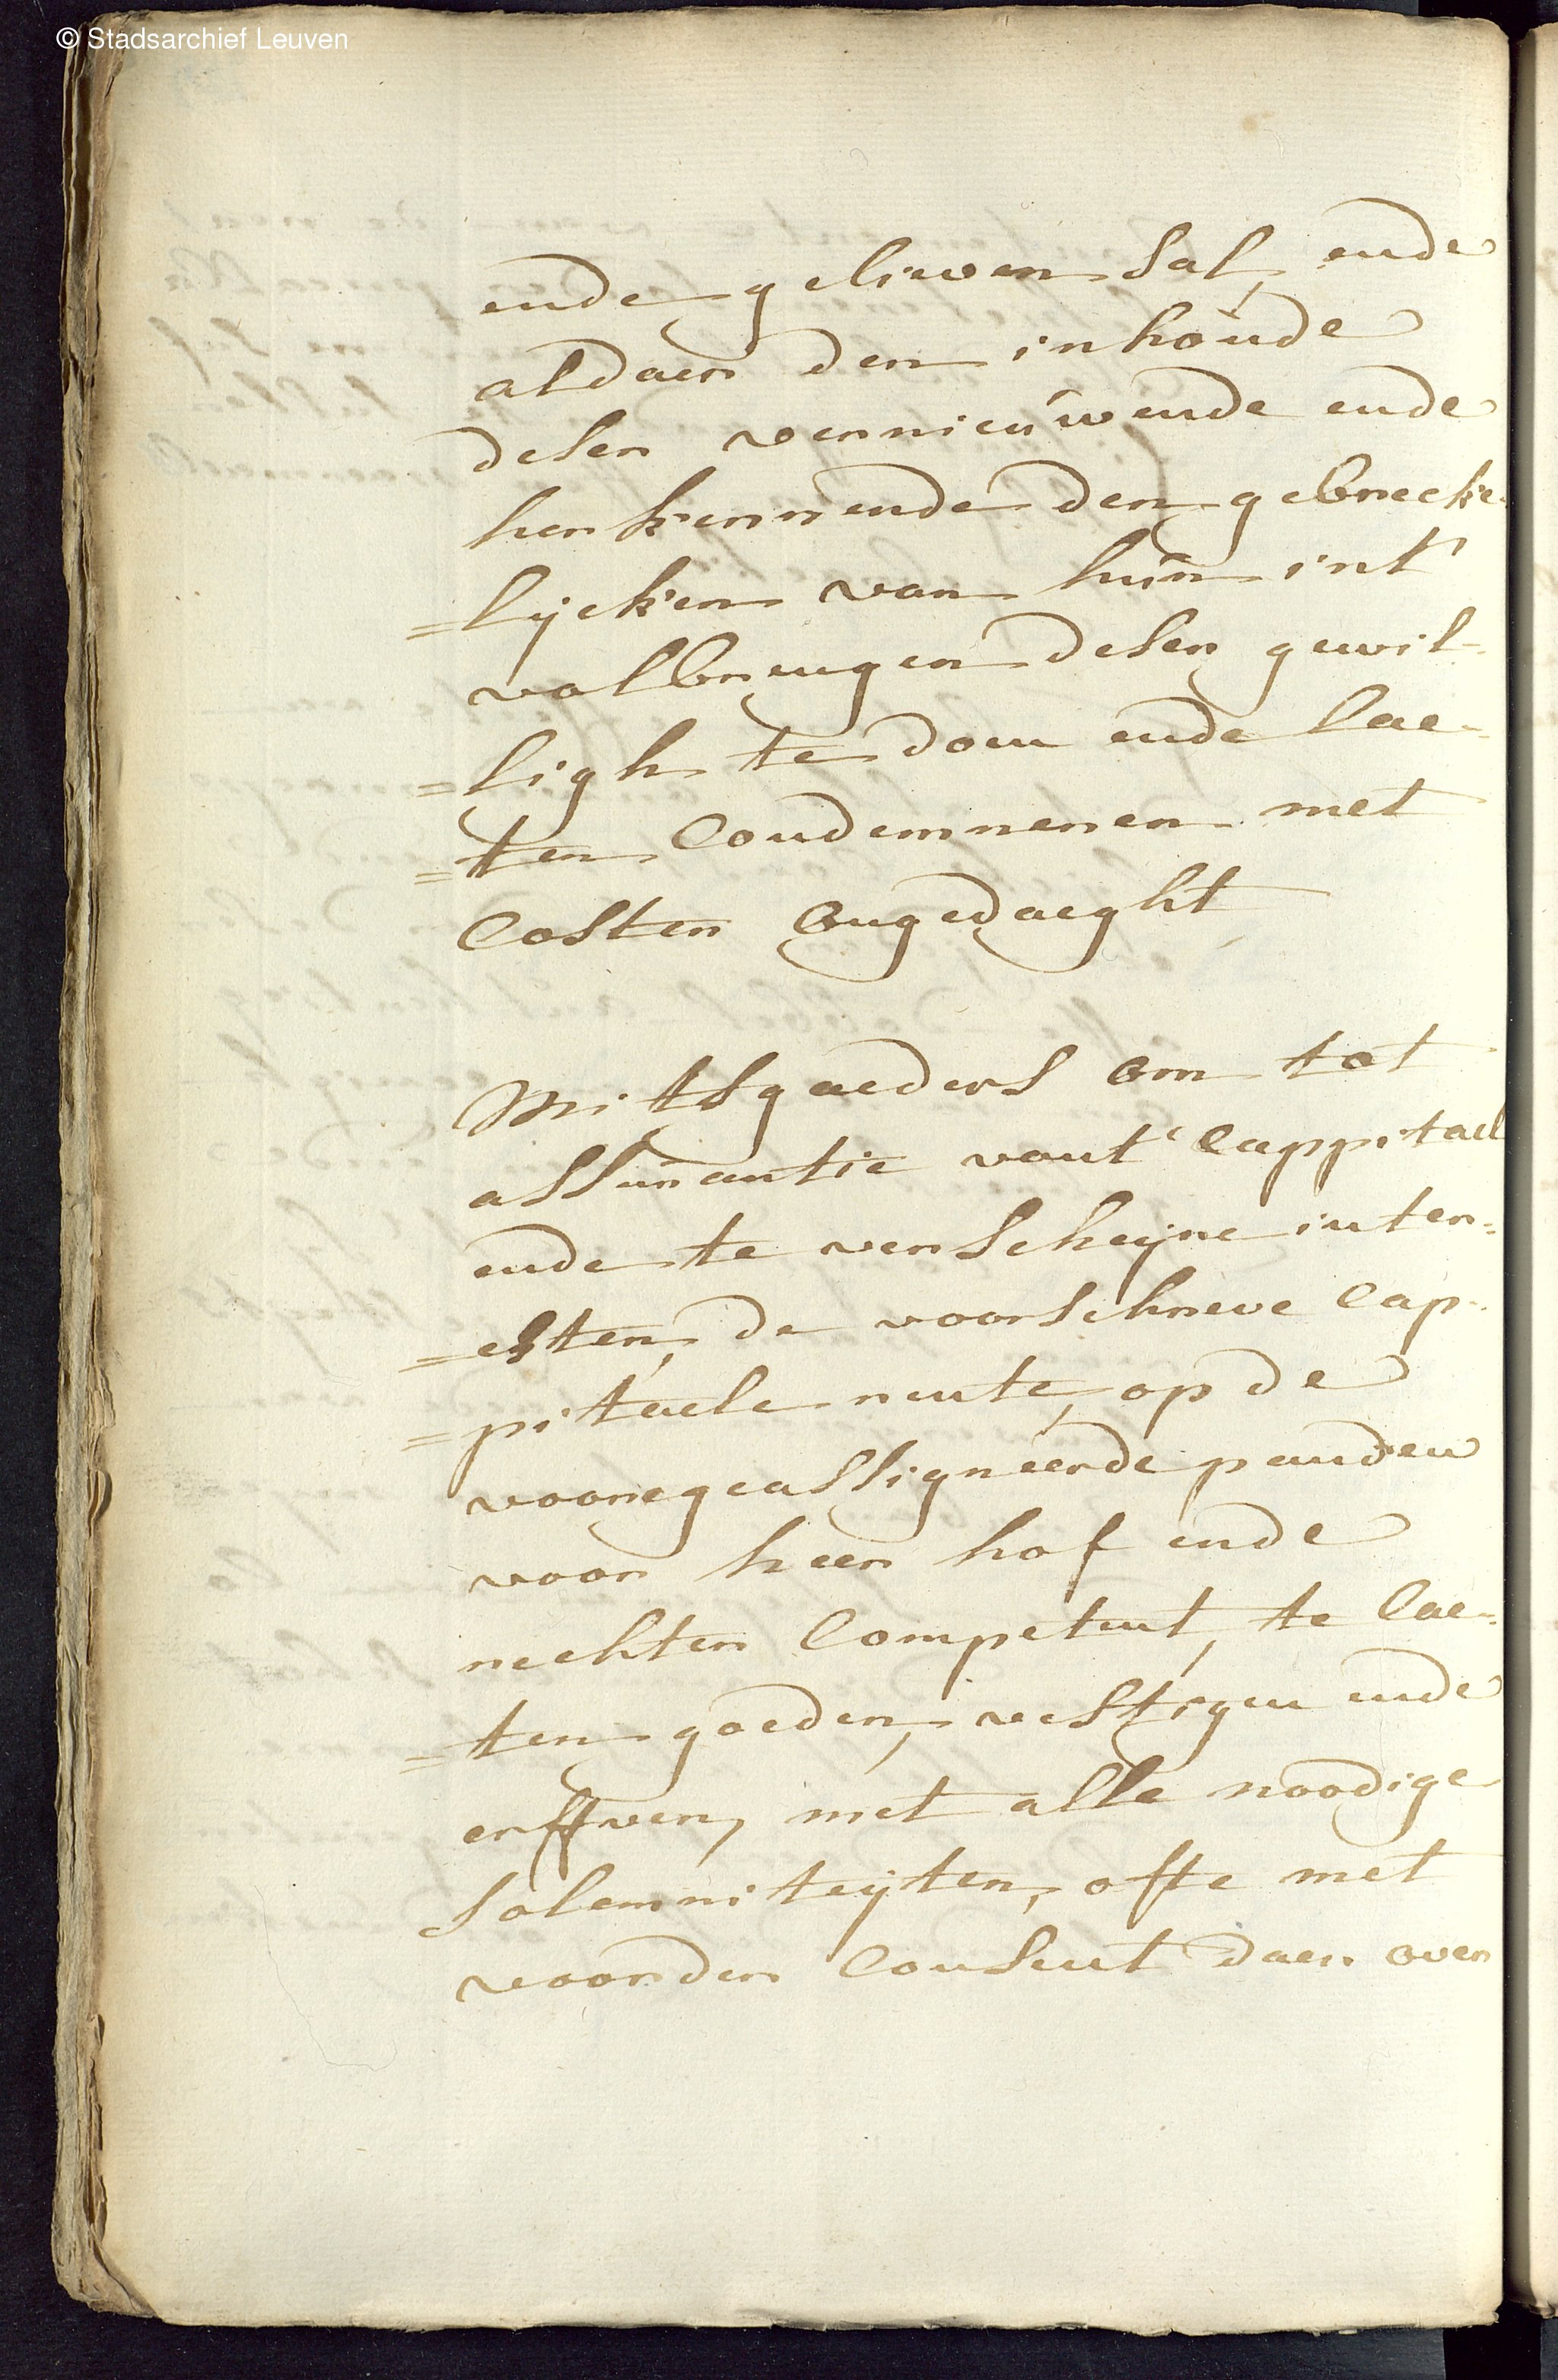 © Stadsarchief Leuven
ende gelieven sal, ende
aldaer den inhoude
deser vernieuwende ende
herkennende den gebreck-
=lijcken van hun int
volbrengen deser gewil-
=ligh te doen ende lae-
=ten condemneren met
costen ongedaeght
Mitsgaeders om tot
assurantie vant cappitael
ende te verscheijne inter=
=esten, de voorschreve cap-
=pitaele rente, op de
vooregeassigneerde panden
voor heer hof ende
rechten competent, te lae=
=ten goeden, vestigen ende
erffven, met alle noodige
solemniteijten, ofte met
voorder consent daer over